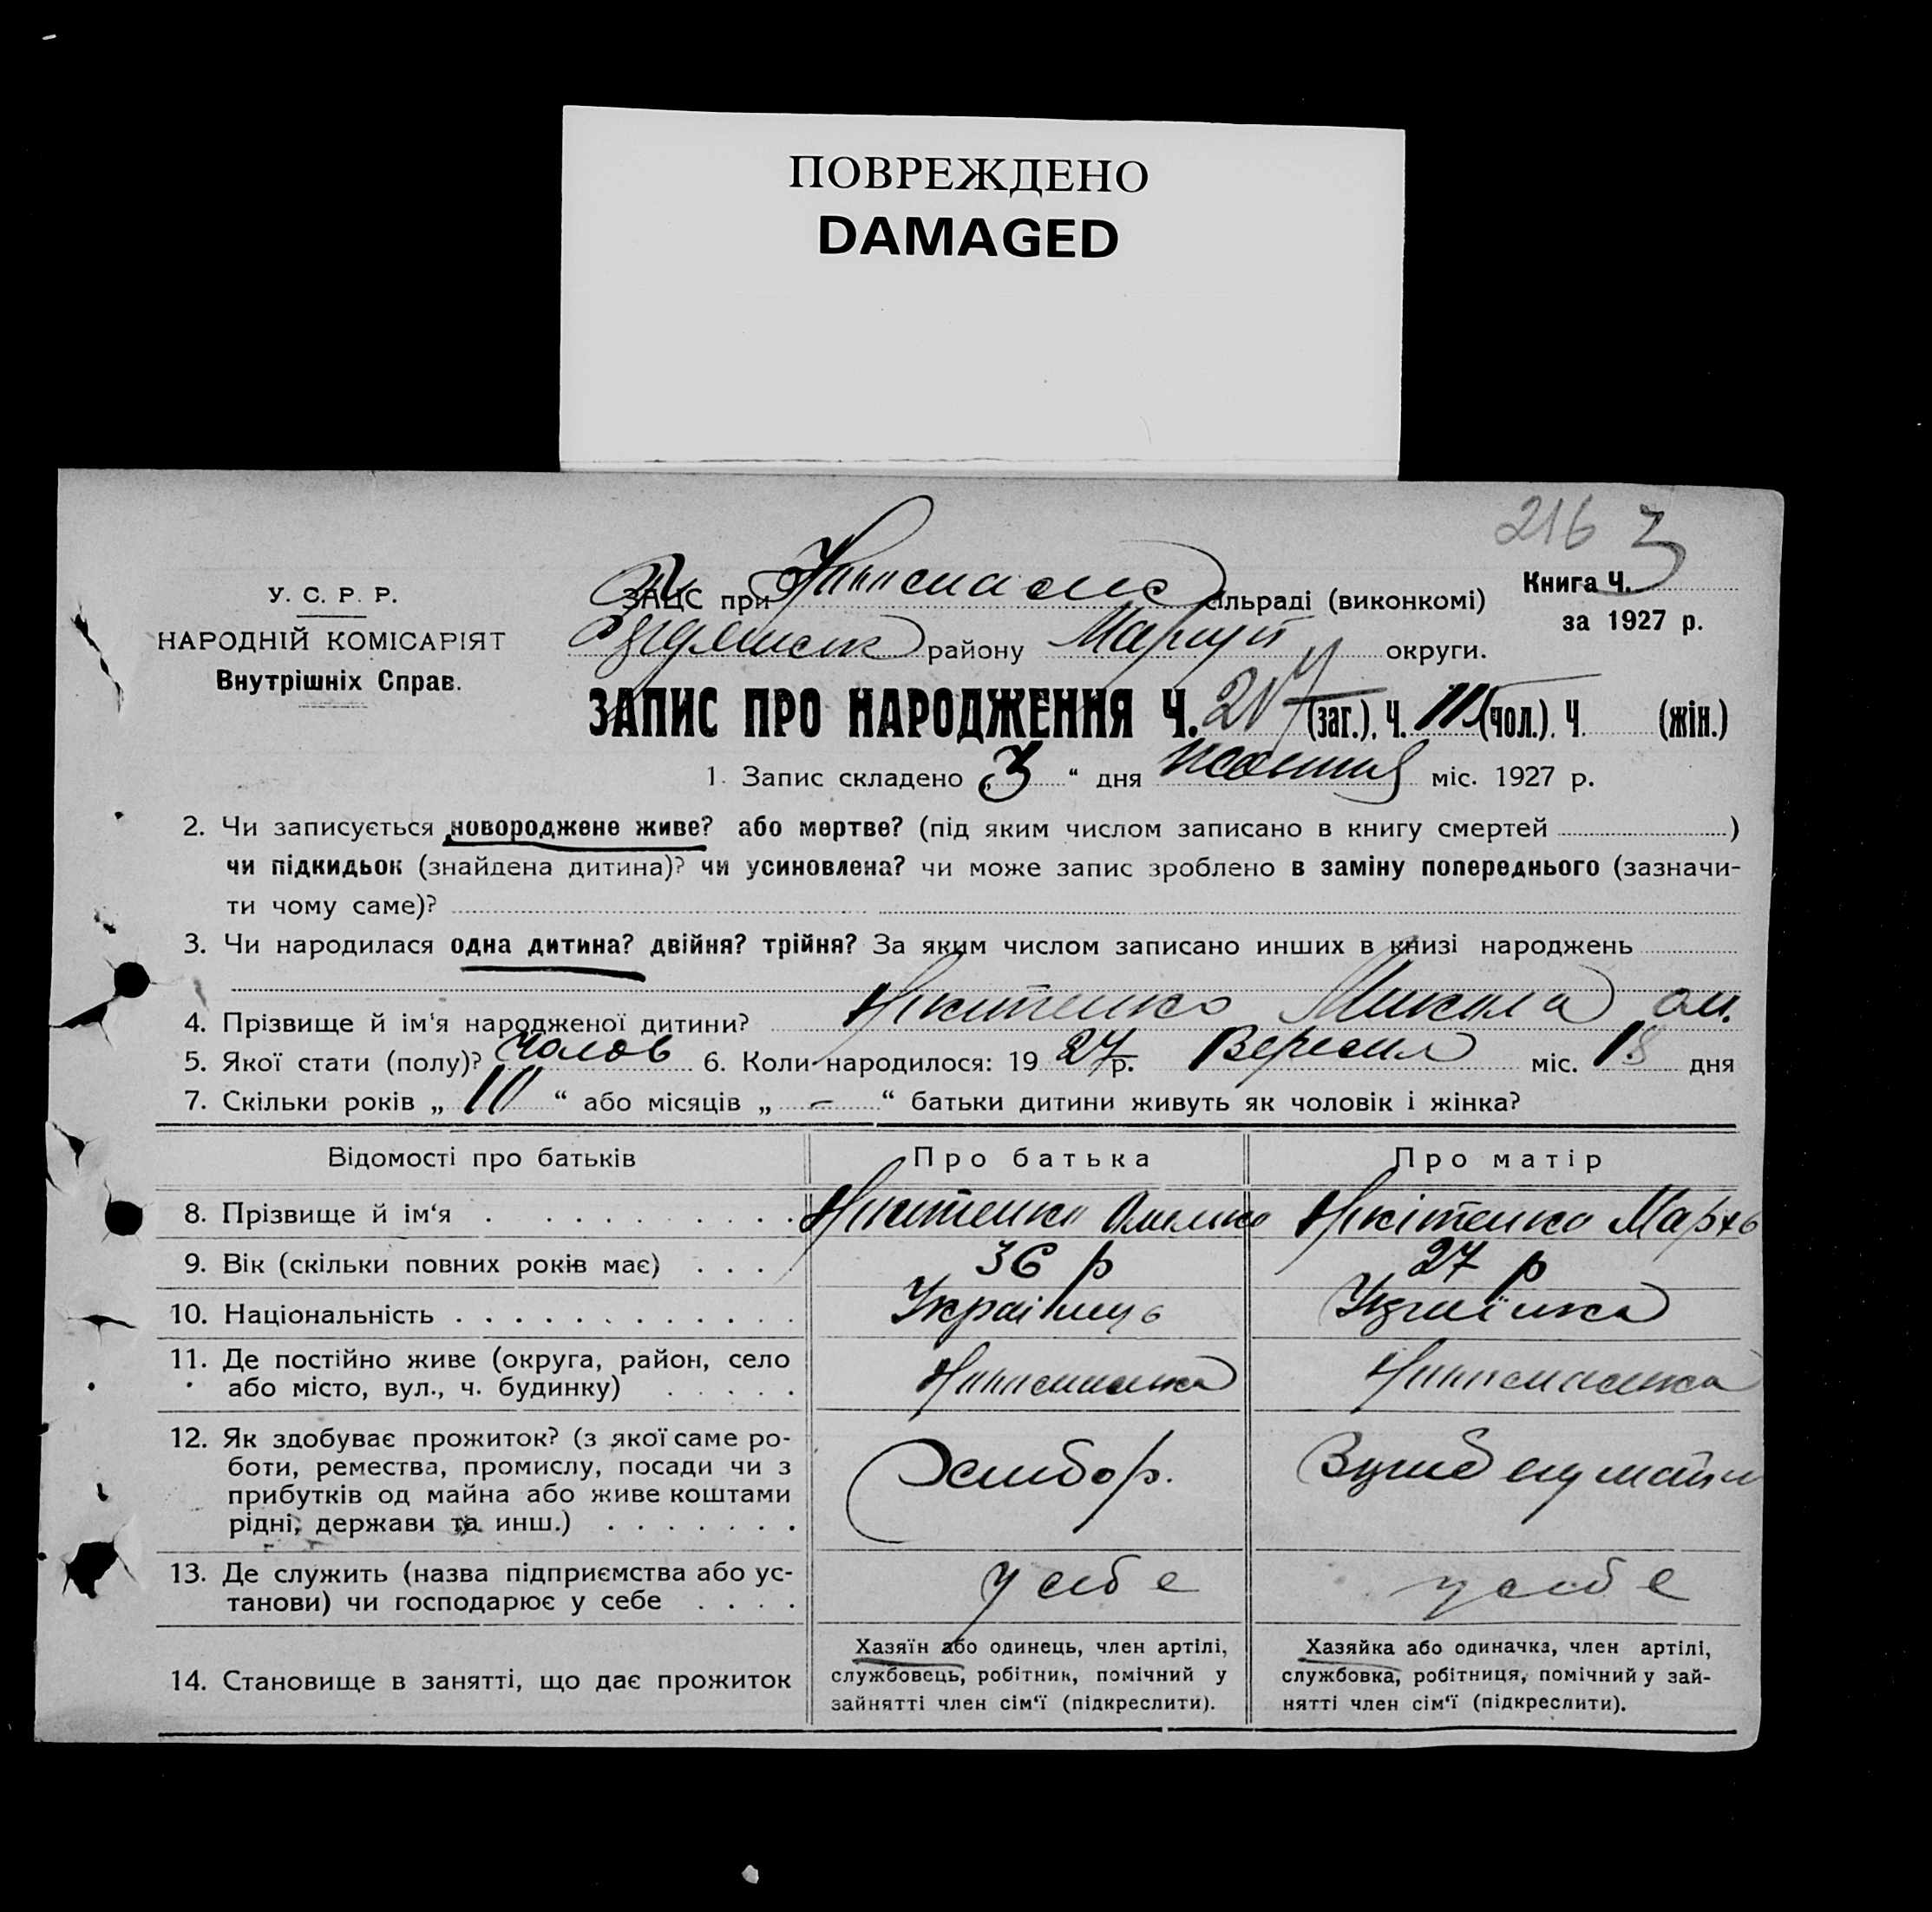 ПОВРЕЖДЕНО
DAMAGED
216 3
У. С. Р. Р.
НАРОДНІЙ КОМІСАРІЯТ
Внутрішніх Справ.
ЗАЦС при сільраді (виконкомі)
району Маріуп округи.
Книга Ч. 3
за 1927 р.
ЗАПИС ПРО НАРОДЖЕННЯ Ч. 217 (заг.). Ч. 111 (чол.). Ч. (жін.)
1. Запис складено „3“ дня жовтня міс. 1927 р.
2. Чи записується новороджене живе? або мертве? (під яким числом записано в книгу смертей )
чи підкидьок (знайдена дитина)? чи усиновлена? чи може запис зроблено в заміну попереднього (зазначи-
ти чому саме)?
3. Чи народилася одна дитина? двійня? трійня? За яким числом записано инших в книзі народжень
4. Прізвище й ім‘я народженої дитини? Нікітенко Микола ом.
5. Якої стати (полу)? Чолов 6. Коли народилося: 1927 р. Вересня міс. 18 дня
7. Скільки років „10“ або місяців „–“ батьки дитини живуть як чоловік і жінка?
Відомості про батьків Про батька Про матір
8. Прізвище й ім‘я Нікітенко Омелько Нікітенко Мархв
9. Вік (скільки повних років має) 36 р 27 р
10. Національність Українець Українка
11. Де постійно живе (округа, район, село
або місто, вул., ч. будинку)
12. Як здобуває прожиток? (з якої саме ро-
боти, ремества, промислу, посади чи з
прибутків од майна або живе коштами
рідні, держави та инш.)
Хлибор.
13. Де служить (назва підприємства або ус-
танови) чи господарює у себе
у себе у себе
14. Становище в занятті, що дає прожиток
Хазяїн або одинець, член артілі,
службовець, робітник, помічний у
зайнятті член сім‘ї (підкреслити).
Хазяйка або одиначка, член артілі,
службовка, робітниця, помічний у зай-
нятті член сім‘ї (підкреслити).